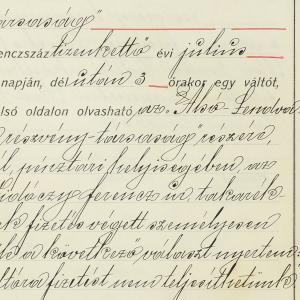 társaság"
lenczszáz tizenkettő évi július
napján, dél után 3 órakor egy váltót,
lső oldalon olvasható az "Alsó-Lendva
részvény-társaság" részére,
l, pénztári helyiségében, az
ferencz úr, takarék-
k fizetés végett személyesen
a következő választ nyertem:
fizetést nem teljesíthetünk